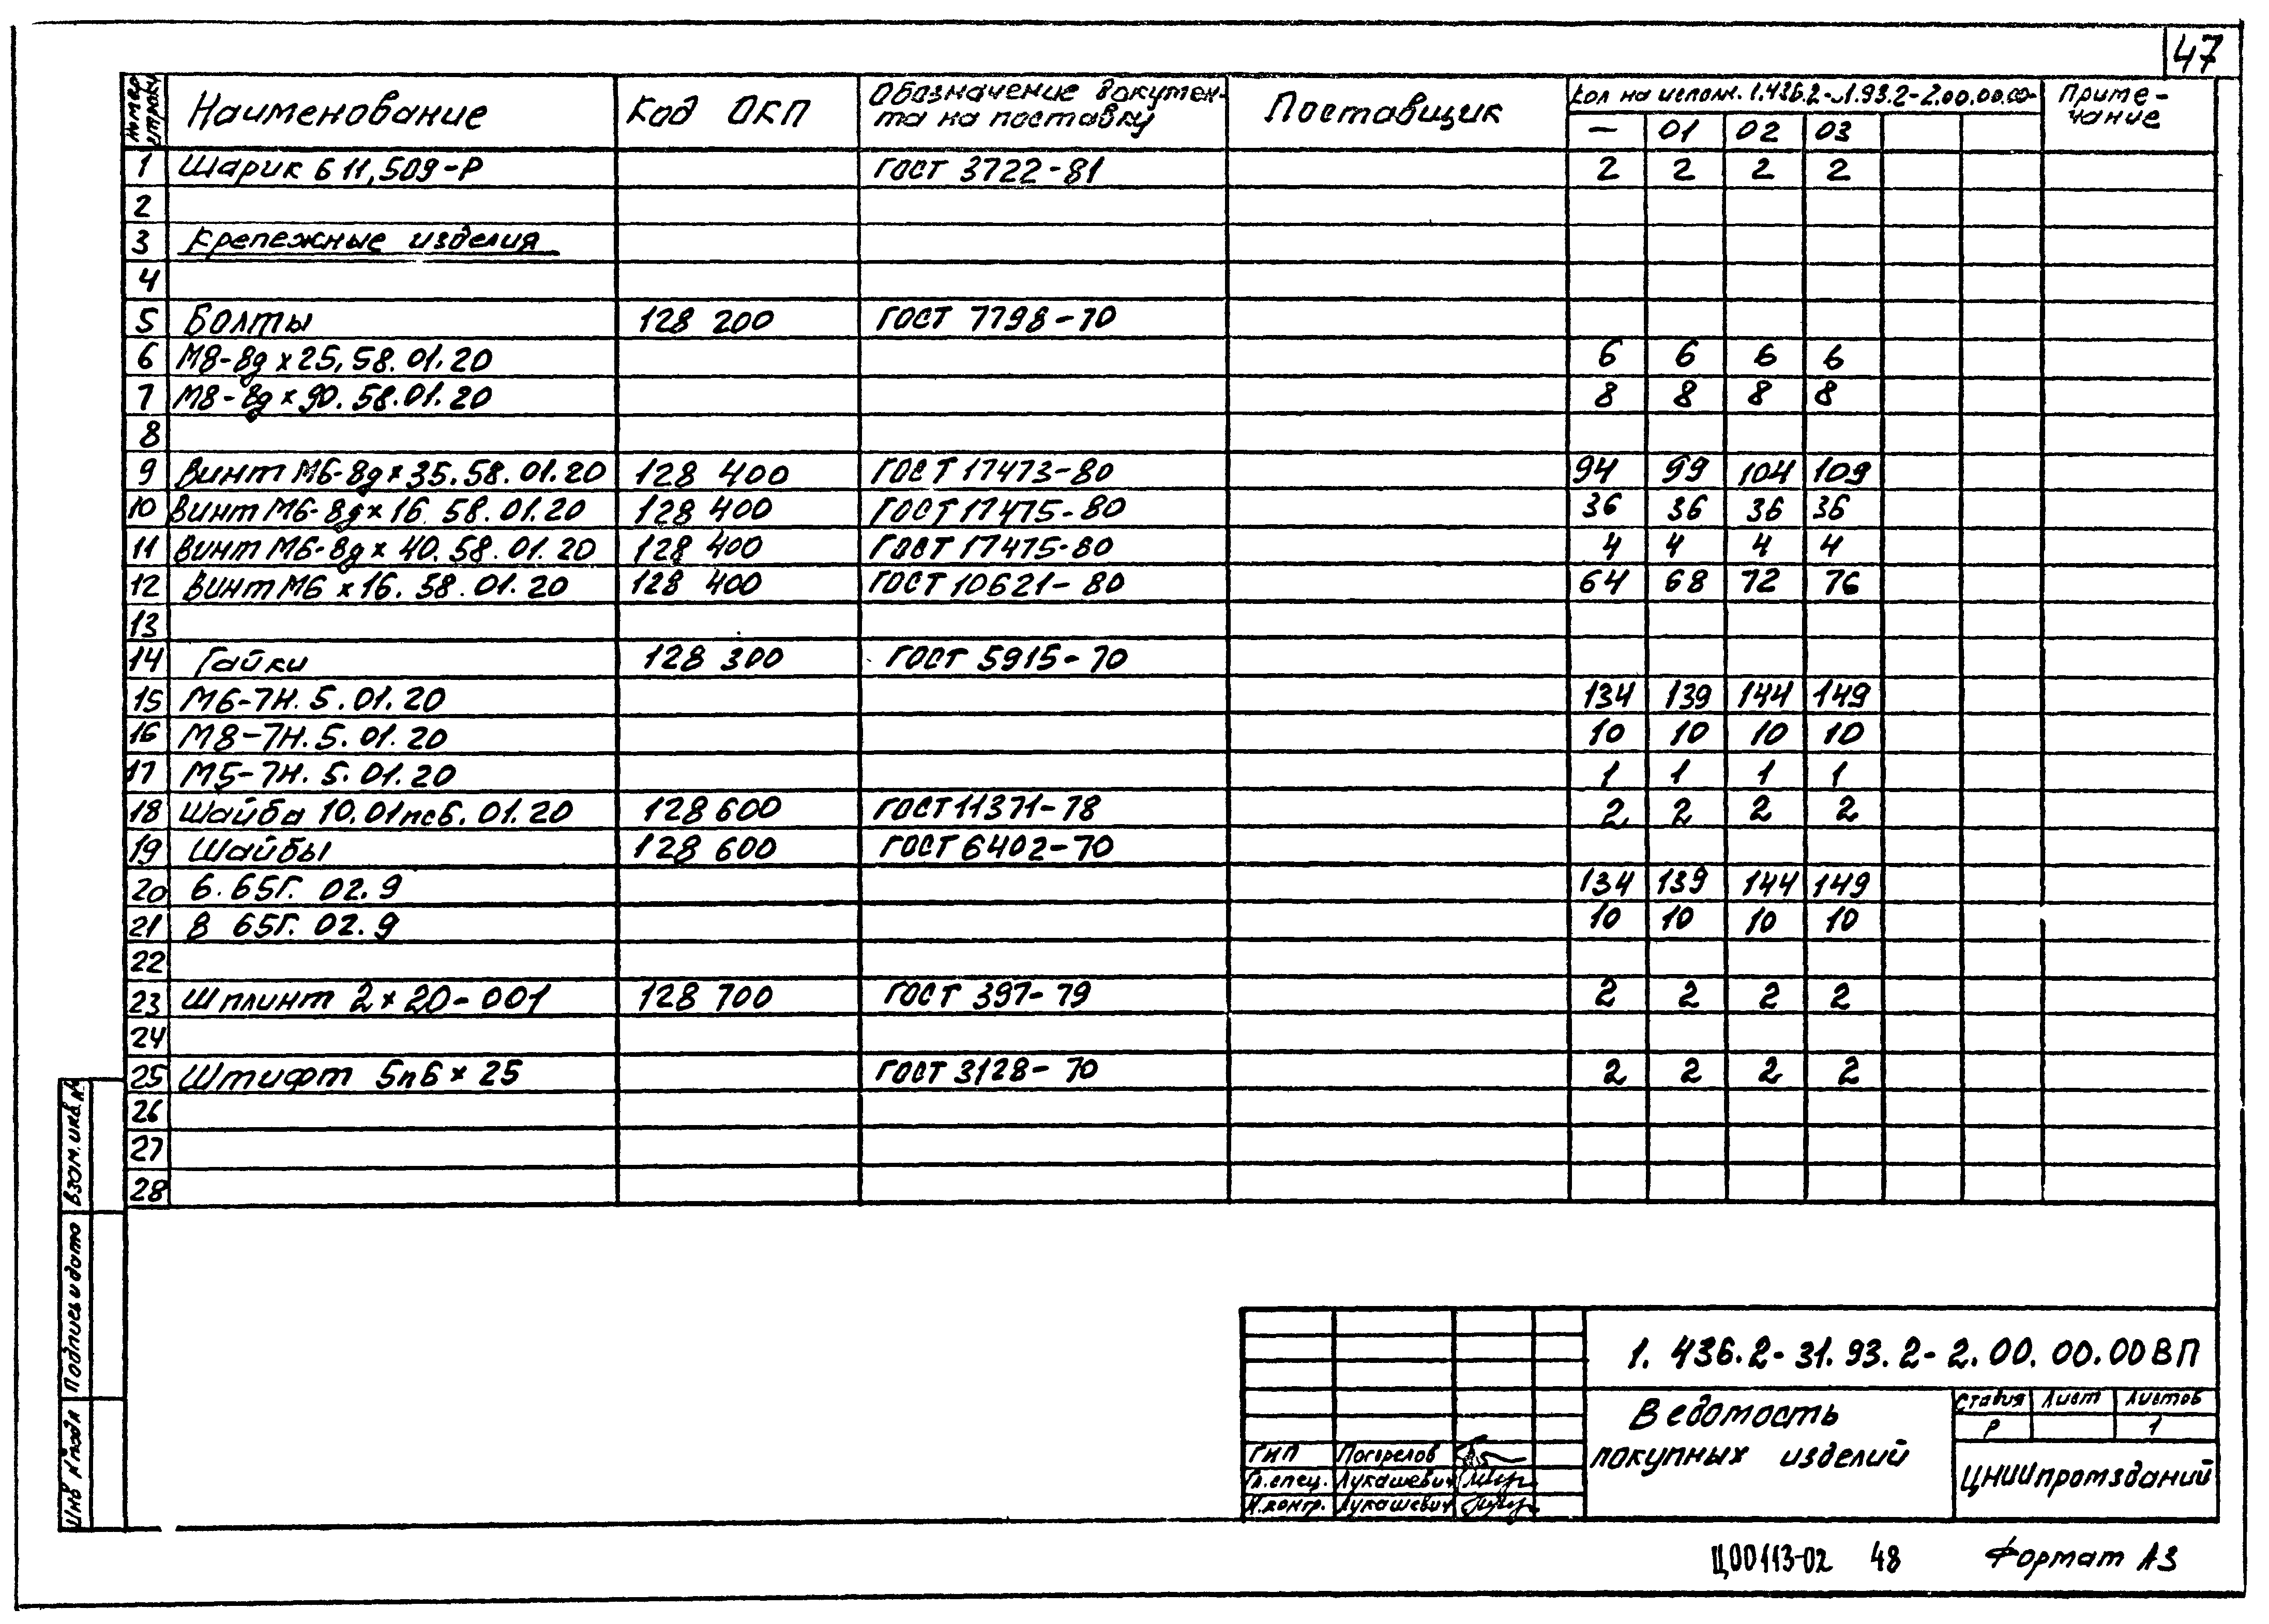 47
Номер строки Наименование Код ОКП Обозначение докумен- та на поставку Поставщик Кол на исполн. 1.436.2-31.93.2-2.00.00.00- Приме- чание
— 01 02 03
1 Шарик Б 11,509-Р ГОСТ 3722-81 2 2 2 2
2
3 Крепежные изделия
4
5 Болты 128 200 ГОСТ 7798-70
6 М8-8g х 25,58.01.20 6 6 6 6
7 М8-8g х 90.58.01.20 8 8 8 8
8
9 Винт М6-8g х 35.58.01.20 128 400 ГОСТ 17473-80 94 99 104 109
10 Винт М6-8g х 16 58.01.20 128 400 ГОСТ 17475-80 36 36 36 36
11 Винт М6-8g х 40.58.01.20 128 400 ГОСТ 17475-80 4 4 4 4
12 Винт М6 х 16.58.01.20 128 400 ГОСТ 10621-80 64 68 72 76
13
14 Гайки 128 300 ГОСТ 5915-70
15 М6-7Н.5.01.20 134 139 144 149
16 М8-7Н.5.01.20 10 10 10 10
17 М5-7Н.5.01.20 1 1 1 1
18 Шайба 10.01пс6.01.20 128 600 ГОСТ 11371-78 2 2 2 2
19 Шайбы 128 600 ГОСТ 6402-70
20 6.65Г.02.9 134 139 144 149
21 8 65Г.02.9 10 10 10 10
22
23 Шплинт 2х20-001 128 700 ГОСТ 397-79 2 2 2 2
24
25 Штифт 5п6х25 ГОСТ 3128-70 2 2 2 2
26
27
28
Взам.инв.№
Подпись и дата
Инв №подл
1.436.2-31.93.2-2.00.00.00ВП
Ведомость
покупных изделий
Стадия Лист Листов
Р 1
ЦНИИпромзданий
ГИП Погорелов
Гл.спец. Лукашевич
Н.контр. Лукашевич
Ц00113-02 48 Формат А3